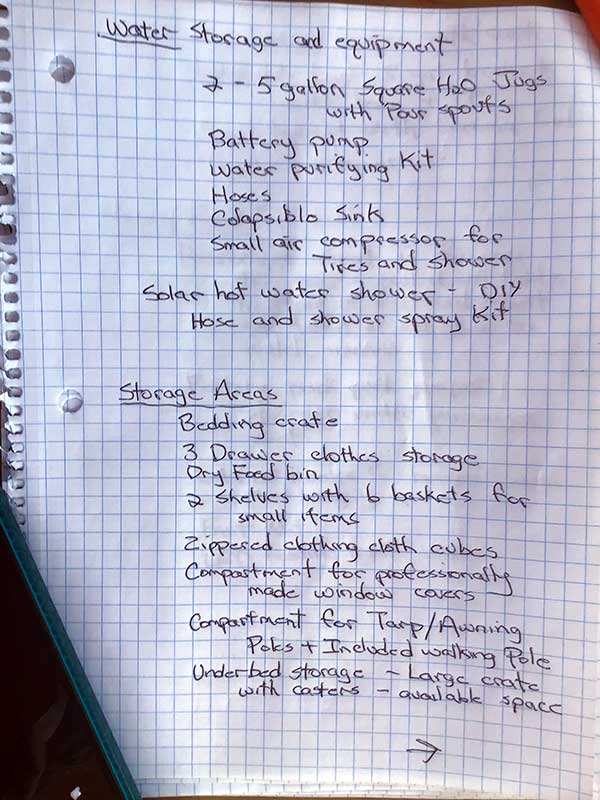 Water Storage and equipment
2 - 5 gallon Square H2O Jugs
with Pour spouts
Battery pump
Water purifying Kit
Hoses
Colapsible Sink
Small air compressor for
Tires and shower
Solar hot water shower - DIY
Hose and shower spray Kit
Storage Areas
Bedding crate
3 Drawer clothes storage
Dry Food bin
2 Shelves with 6 baskets for
small items
Zippered clothing cloth cubes
Compartment for professionally
made window covers
Compartment for Tarp/Awning
Poles + Included walking Pole
Underbed storage - Large crate
with casters - available space
→